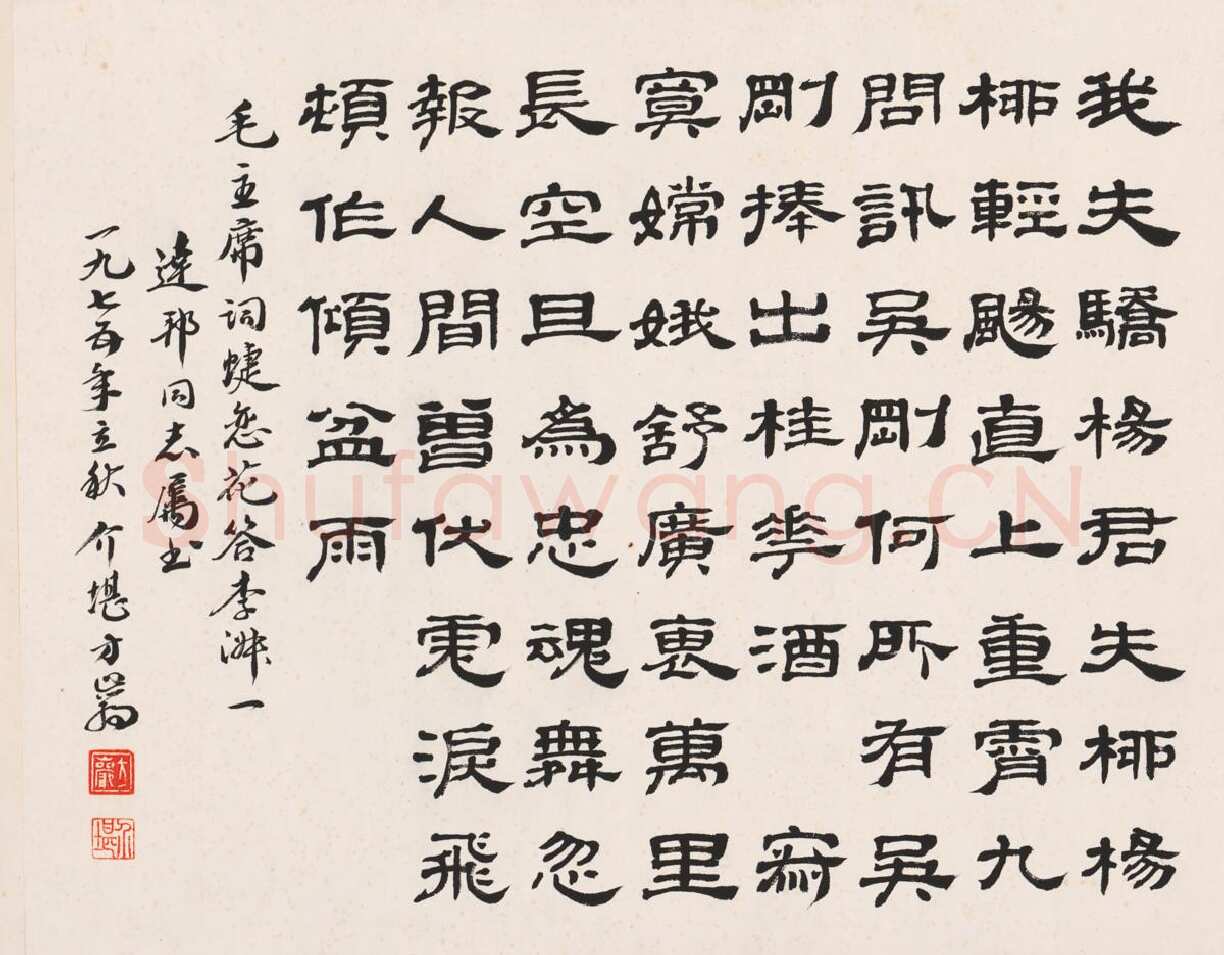 我失驕楊君失柳楊
柳輕颺直上重霄九
問訊吳剛何所有吳
剛捧出桂華酒 寂
寞嫦娥舒廣褎萬里
長空且為忠魂舞忽
報人間曾伏虎淚飛
頓作傾盆雨
毛主席詞蝶恋花答李淑一
達邦同志屬书
一九七五年立秋 介堪方
方巖
介堪
Shufawang.CN